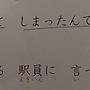 て しまったんで
る 駅員に 言っ
えきいん い